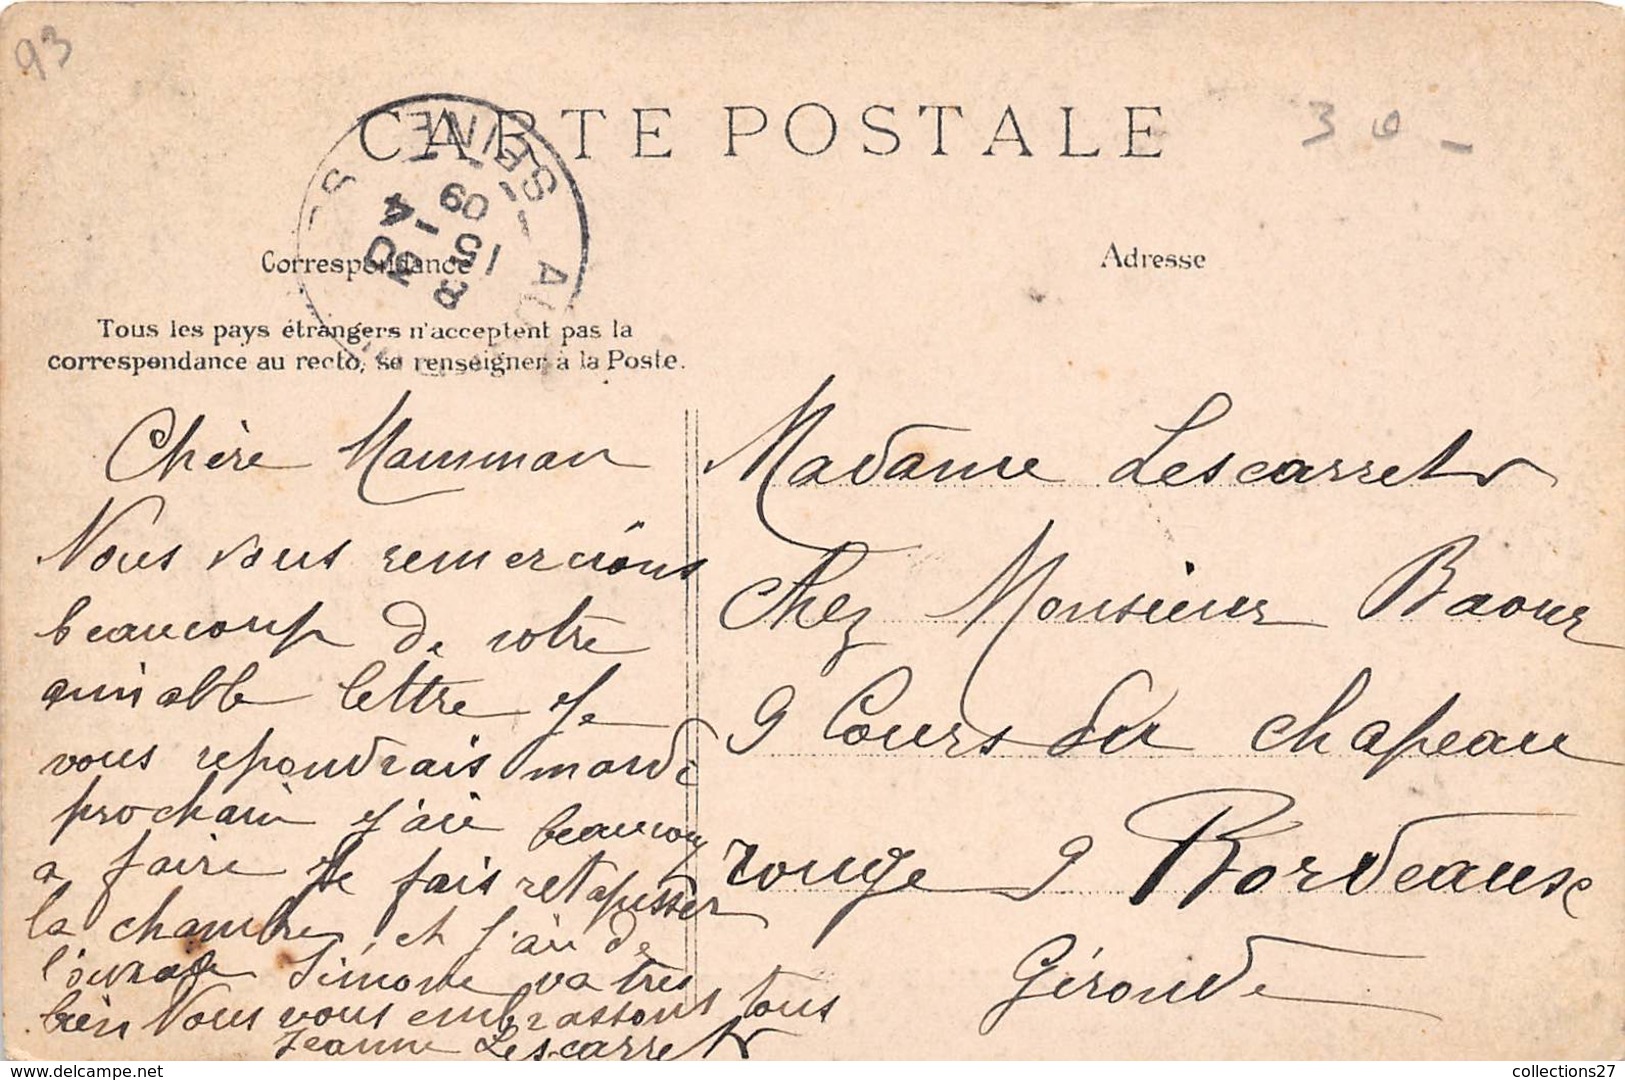 93
CARTE POSTALE
30 -
SEINE
15
4
09
Correspondance
Adresse
Tous les pays étrangers n'acceptent pas la
correspondance au recto, se renseigner à la Poste.
Chère Mamman
Nous vous remercïons
beaucoup de votre
aimable lettre Je
vous repondrais mardi
prochain J'ai beaucoup
a faire Je fais retapisser
la chambre, et J'ai de
l'ouvrage Simone va tres
bien Nous vous embrassons tous
Jeanne Lescarret
Madame Lescarret
Chez Monsieur Baour
9 Cours du Chapeau
rouge 9 Bordeaux
Gironde
collections27